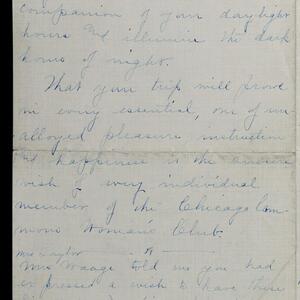 companion of your daylight
hours and illumine the dark
hours of night.
That your trip will prove
in every essential, one of un
alloyed pleasure instruction
and happiness is the sincere
wish of every individual
member of the Chicago Com
mons Woman's Club
Mrs Taylor
Mrs Waage told me you had
expressed a wish to have those